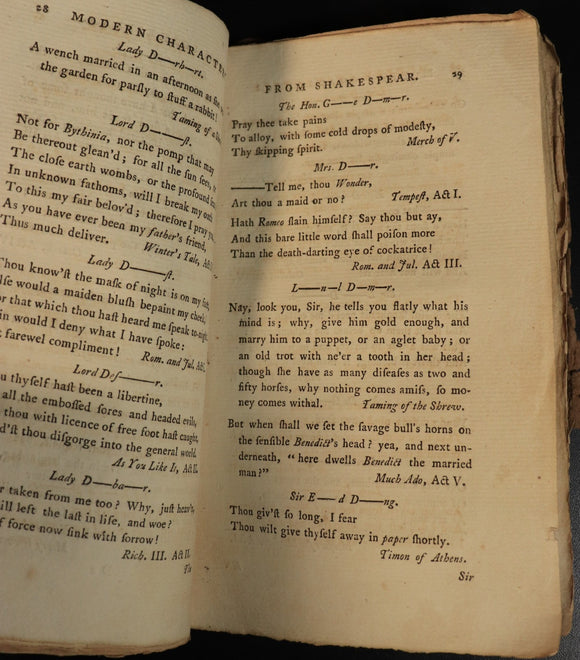 28 MODERN CHARACTE
Lady D——rb—rt.
A wench married in an afternoon as she
the garden for parsly to stuff a rabbit!
Taming of a
Lord D———st.
Not for Bythinia, nor the pomp that may
Be thereout glean'd; for all the sun sees,
The close earth wombs, or the profound
In unknown fathoms, will I break my oath
To this my fair belov'd; therefore I pray
As you have ever been my father's friend,
Thus much deliver.
Winter's Tale, Act
Lady D———st.
Thou know'st the mask of night is on my face,
lse would a maiden blush bepaint my cheek,
or that which thou hast heard me speak to-night
in would I deny what I have spoke:
farewel compliment!
Rom. and Jul. Act
Lord Des———r.
u thyself hast been a libertine,
all the embossed sores and headed evils,
thou with licence of free foot hast caught,
d'st thou disgorge into the general world.
As You Like It, Act II.
Lady D——ba—r.
r taken from me too? Why, just
ill left the last in life, and woe?
f force now sink with sorrow!
Rich. III. Act II.
FROM SHAKESPEAR. 29
The Hon. G——e D—m—r.
Pray thee take pains
To alloy, with some cold drops of modesty,
Thy skipping spirit.
Merch of V.
Mrs. D——r.
———Tell me, thou Wonder,
Art thou a maid or no?
Tempest, Act I.
Hath Romeo slain himself? Say thou but ay,
And this bare little word shall poison more
Than the death-darting eye of cockatrice!
Rom. and Jul. Act III.
L——n—l D—m—r.
Nay, look you, Sir, he tells you flatly what his
mind is; why, give him gold enough, and
marry him to a puppet, or an aglet baby; or
an old trot with ne'er a tooth in her head;
though she have as many diseases as two and
fifty horses, why nothing comes amiss, so mo-
ney comes withal. Taming of the Shrew.
But when shall we set the savage bull's horns on
the sensible Benedict's head? yea, and next un-
derneath, "here dwells Benedict the married
man?"
Much Ado, Act V.
Sir E——d D——ng.
Thou giv'st so long, I fear
Thou wilt give thyself away in paper shortly.
Timon of Athens.
Sir